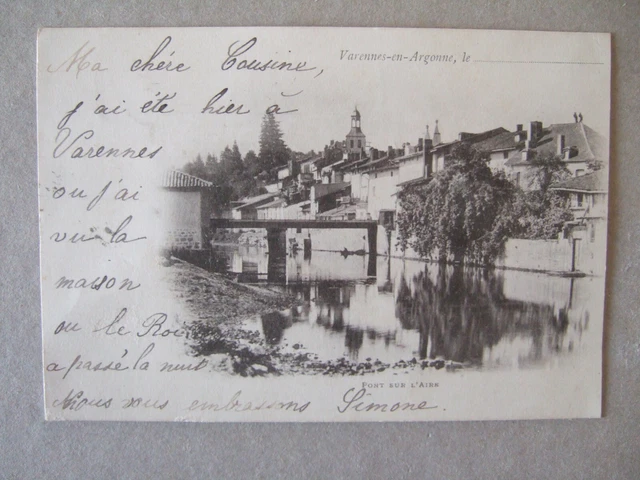 Varennes-en-Argonne, le
Ma chére Cousine,
j'ai été hier à
Varennes
ou j'ai
vu la
maison
ou le Roi
a passé la nuit
Nous vous embrassons Simone.
PONT SUR L'AIRE